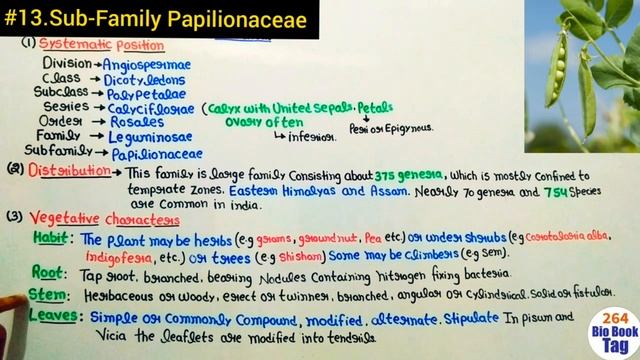 #13.Sub-Family Papilionaceae
(1) Systematic position
Division → Angiospermae
Class → Dicotyledons
Subclass → Polypetalae
Series → Calyciflorae (Calyx with United sepals. Petals
ovary often
→ inferior.
Peri or Epigynous.
Order → Rosales
Family → Leguminosae
Subfamily → Papilionaceae
(2) Distribution → This family is large family Consisting about 375 genera, which is mostly confined to
temprate zones. Eastern Himalyas and Assam. Nearly 70 genera and 754 Species
are Common in india.
(3) Vegetative characters
Habit: The plant may be herbs (e.g grams, groundnut, Pea etc.) or under shrubs (e.g Corotolaria alba,
Indigofera, etc.) or trees (e.g Shisham) Some may be climbers (e.g Sem).
Root: Tap root, branched, bearing Nodules Containing nitrogen fixing bacteria.
Stem: Herbaceous or woody, erect or twinner, branched, angular or Cylindrical. Solid or fistular.
Leaves: Simple or Commonly Compound, modified, alternate. Stipulate In pisum and
Vicia the leaflets are modified into tendrils.
264
Bio Book
Tag